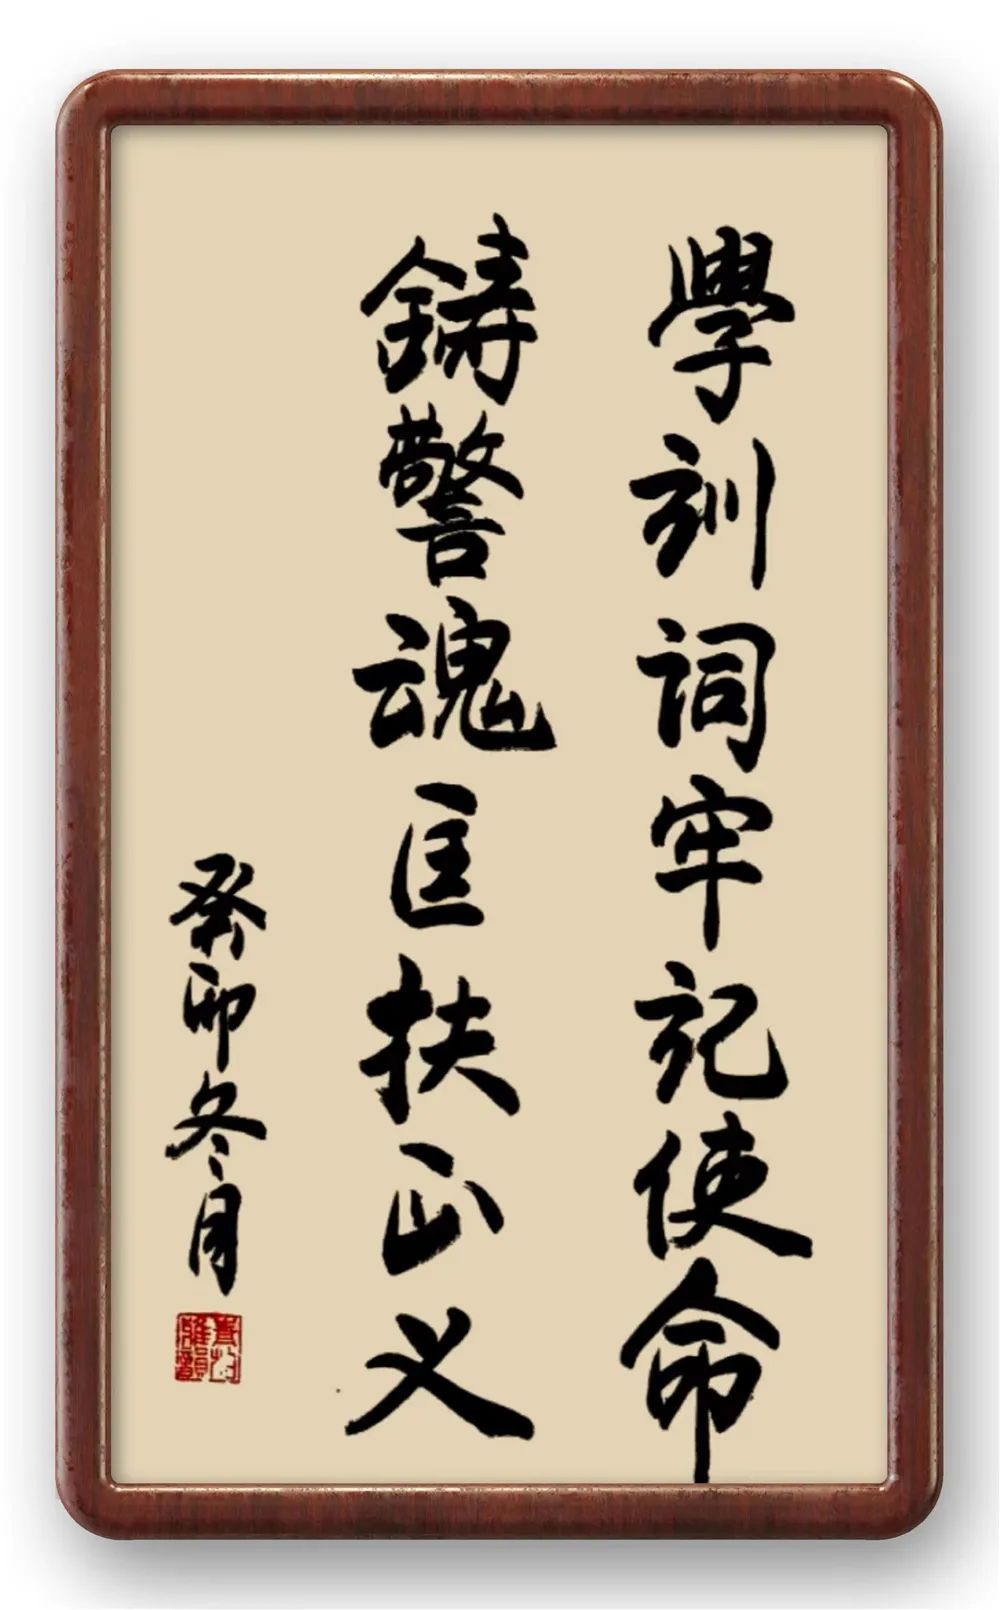 學训词牢记使命
鑄警魂匡扶正义
癸卯冬月